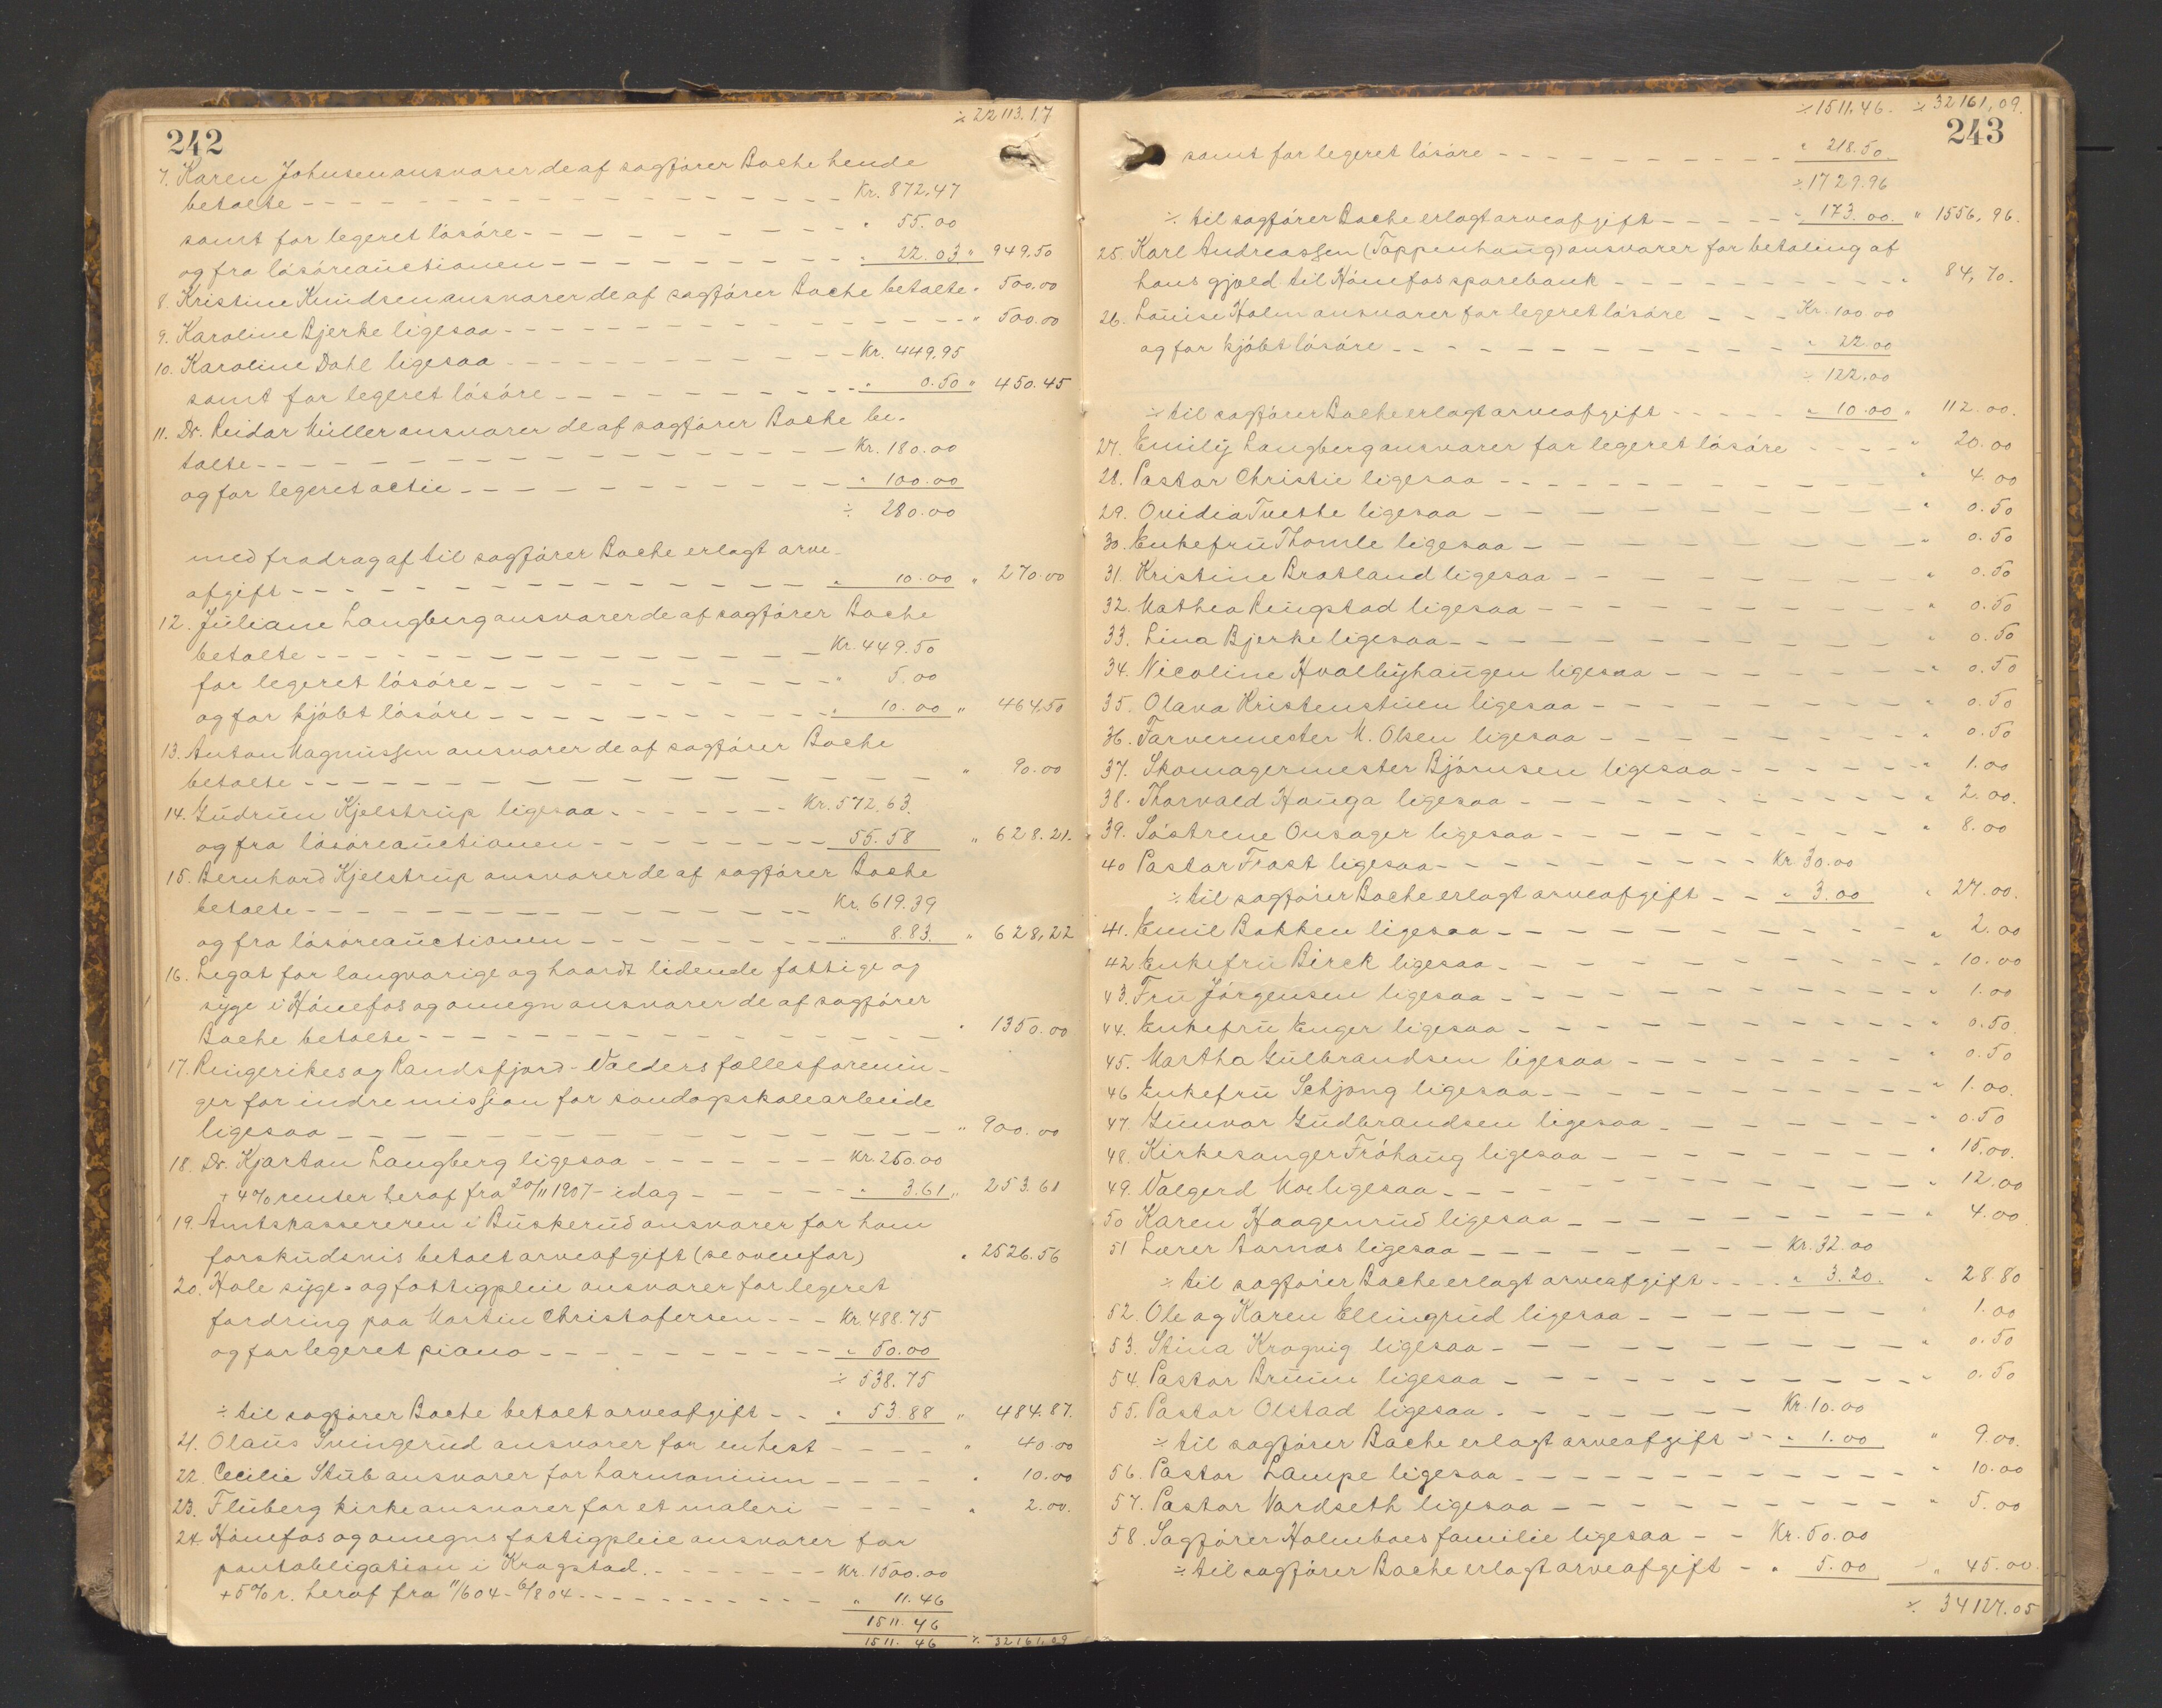 ÷ 22113.17
242
7. Karen Johnsen ansvarer de af sagfører Bache hende
betalte - - - Kr. 872.47
samt for legeret løsøre - - - " 55.00
og fra løsøreauctionen - - - " 22.03 " 949.50
8. Kristine Knudsen ansvarer de af sagfører Bache betalte " 500.00
9. Karoline Bjerke ligesaa - - - " 500.00
10. Karoline Dahl ligesaa - - - Kr. 449.95
samt for legeret løsøre - - - " 0.50 " 450.45
11. Dr. Reidar Müller ansvarer de af sagfører Bache be-
talte - - - Kr. 180.00
og for legeret actie - - - " 100.00
÷ 280.00
med fradrag af til sagfører Bache erlagt arve-
afgift - - - " 10.00 " 270.00
12. Juliane Langberg ansvarer de af sagfører Bache
betalte - - - Kr. 449.50
for legeret løsøre - - - " 5.00
og for kjøbt løsøre - - - " 10.00 " 464,50
13. Anton Magnussen ansvarer de af sagfører Bache
betalte - - - " 90.00
14. Gudrun Kjelstrup ligesaa - - - Kr. 572.63.
og fra løsøreauctionen - - - 55.58 " 628.21.
15. Bernhard Kjelstrup ansvarer de af sagfører Bache
betalte - - - Kr. 619.39
og fra løsøreauctionen - - - " 8.83. " 628,22
16. Legat for langvarige og haardt lidende fattige og
syge i Hønefos og omegn ansvarer de af sagfører
Bache betalte - - - " 1350.00
17. Ringerikes og Randsfjord-Valders fællesforenin-
ger for indre mission for søndagsskolearbeide
ligesaa - - - " 900.00
18. Dr. Kjartan Langberg ligesaa - - - Kr. 250.00
+ 4% renter heraf fra 20/11 1907 - idag - - - " 3.61 " 253.61
19. Amtskassereren i Buskerud ansvarer for ham
forskudsvis betalt arveafgift (se ovenfor) " 2526.56
20. Hole syge- og fattigpleie ansvarer for legeret
fordring paa Martin Christofersen - - - Kr. 488.75
og for legeret piano - - - " 50.00
÷ 538.75
÷ til sagfører Bache betalt arveafgift - - " 53.88 " 484.87.
21. Olaus Svingerud ansvarer for en hest - - - " 40.00
22. Cecilie Stub ansvarer for harmonium - - - " 10.00
23. Fluberg kirke ansvarer for et maleri - - - " 2.00.
24. Hønefos og omegns fattigpleie ansvarer for
pantobligation i Kragstad. - - - Kr. 1500.00
+ 5% r. heraf fra 11/6 04 - 6/8 04 - - - " 11.46
1511.46
1511.46 ÷ 32161.09
÷ 1511.46. ÷ 32161,09.
243
samt for legeret løsøre - - - " 218.50.
÷ 1729.96
÷ til sagfører Bache erlagt arveafgift - - - " 173.00. " 1556,96.
25. Karl Andreassen (Toppenhaug) ansvarer for betaling af
hans gjæld til Hønefos sparebank - - - " 84,70.
26. Louise Holm ansvarer for legeret løsøre - - - Kr. 100.00
og for kjøbt løsøre - - - " 22.00
÷ 122.00
÷ til sagfører Bache erlagt arveafgift - - - " 10.00 " 112.00.
27. Emily Langberg ansvarer for legeret løsøre - - - " 20.00
28. Pastor Christie ligesaa - - - " 4.00
29. Ovidia Tvethe ligesaa - - - " 0.50
30. Enkefru Thomle ligesaa - - - " 0.50
31. Kristine Bratland ligesaa - - - " 0.50
32. Mathea Ringstad ligesaa - - - " 0.50
33. Lina Bjerke ligesaa - - - " 0.50
34. Nicoline Hvalbyhaugen ligesaa - - - " 0.50
35. Olava Kristenstuen ligesaa - - - " 0.50
36. Farvermester M. Olsen ligesaa - - - " 0.50
37. Skomagermester Bjørnsen ligesaa - - - " 1.00
38. Thorvald Hauga ligesaa - - - " 2.00.
39. Søstrene Onsager ligesaa - - - " 8.00
40 Pastor Frost ligesaa - - - Kr. 30.00
÷ til sagfører Bache erlagt arveafgift - - " 3.00 " 27.00.
41. Emil Bakken ligesaa - - - " 2.00
42 Enkefru Birck ligesaa - - - " 10.00
43. Fru Jørgensen ligesaa - - - " 1.00
44. Enkefru Enger ligesaa - - - " 0.50.
45. Martha Gulbrandsen ligesaa - - - " 0.50
46 Enkefru Schjong ligesaa - - - " 1.00.
47. Gunvor Gudbrandsen ligesaa - - - " 0.50
48. Kirkesanger Frøhaug ligesaa - - - " 15.00.
49. Valgerd Moe ligesaa - - - " 12.00
50 Karen Haagenrud ligesaa - - - " 4.00.
51 Lærer Aarnæs ligesaa - - - Kr. 32.00
÷ til sagfører Bache erlagt arveafgift - - - " 3.20. " 28.80
52. Ole og Karen Ellingrud ligesaa - - - " 1.00
53. Stina Kragvig ligesaa - - - " 0.50
54. Pastor Bruun ligesaa - - - " 0.50
55. Pastor Olstad ligesaa - - - Kr. 10.00
÷ til sagfører Bache erlagt arveafgift - - " 1.00 " 9.00.
56. Pastor Lampe ligesaa - - - " 10.00
57. Pastor Vardseth ligesaa - - - " 5.00
58. Sagfører Holmboes familie ligesaa - - Kr. 50.00
÷ til sagfører Bache erlagt arveafgift - " 5.00 " 45.00.
÷ 34127.05